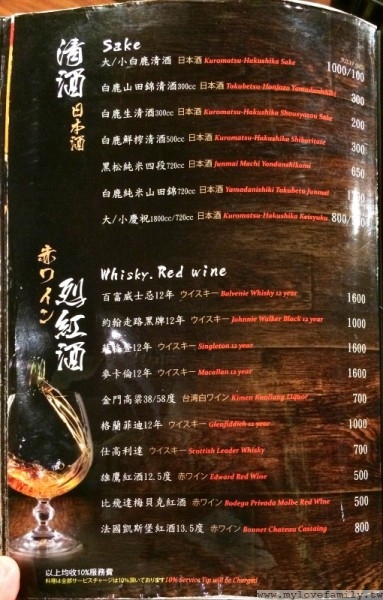 清酒 日本酒
Sake
大/小白鹿清酒 日本酒 Kuromatsu-Hakushika Sake 1000/100
白鹿山田錦清酒300cc 日本酒 300
白鹿生清酒300cc 日本酒 Kuromatsu-Hakushika 200
白鹿鮮榨清酒500cc 日本酒 Kuromatsu-Hakushika 300
黑松純米四段720cc 日本酒 Junmai Machi Yondanshikomi 650
白鹿純米山田錦720cc 日本酒 Yamadanishiki Tokubetu Junmai
大/小慶祝1800cc/720cc 日本酒 Kuromatsu-Hakushika
赤ワイン 烈紅酒
Whisky.Red wine
百富威士忌12年 ウイスキー Balvenie Whisky 12 year 1600
約翰走路黑牌12年 ウイスキー Johnnie Walker Black 12 year 1000
12年 ウイスキー Singleton 12 year 1600
麥卡倫12年 ウイスキー Macallan 12 year 1600
金門高梁38/58度 台湾白ワイン Liquor 700
格蘭菲迪12年 ウイスキー Glenfiddich 12 year 1000
仕高利達 ウイスキー Scottish Leader Whisky 700
雄鷹紅酒12.5度 赤ワイン Edward Red Wine 500
比飛達梅貝克紅酒 赤ワイン Bodega Privada Molbe Red Wine 500
法國凱斯堡紅酒13.5度 赤ワイン Bonnet Chateau Castaing 800
以上均收10%服務費
料理は全部サービスチャージは10%頂いております 10% Service Tip will be Charged
www.mylovefamily.tw